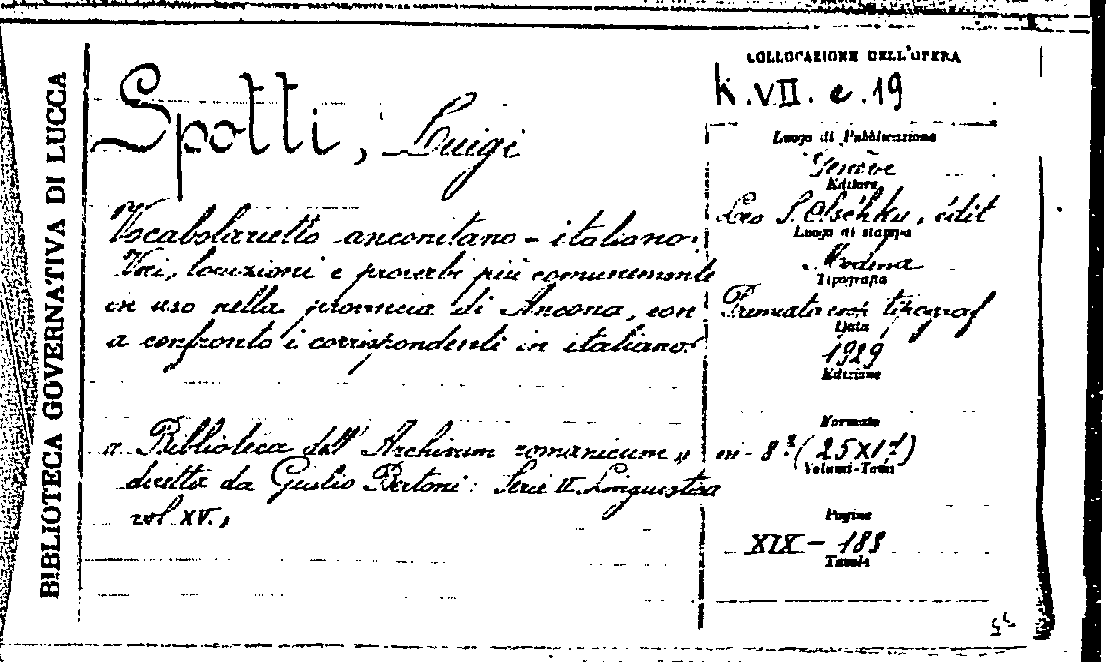 BIBLIOTECA GOVERNATIVA DI LUCCA
Spotti, Luigi
Vocabolarietto anconitano - italiano.
Voci, locuzioni e proverbi più comunemente
in uso nella provincia di Ancona, con
a confronto i corrispondenti in italiano.
"Biblioteca dell'Archivum romanicum"
diretta da Giulio Bertoni: Serie II. Linguistica
vol. XV.,
COLLOCAZIONE DELL'OPERA
K. VII. e. 19
Luogo di Pubblicazione
Genève
Editore
Leo S. Olschki, édit
Luogo di stampa
Modena
Tipografia
Premiata tipograf
Data
1929
Edizione
Formato
in-8º (25x17)
Volumi-Tomi
Pagine
XIX - 183
Tavole